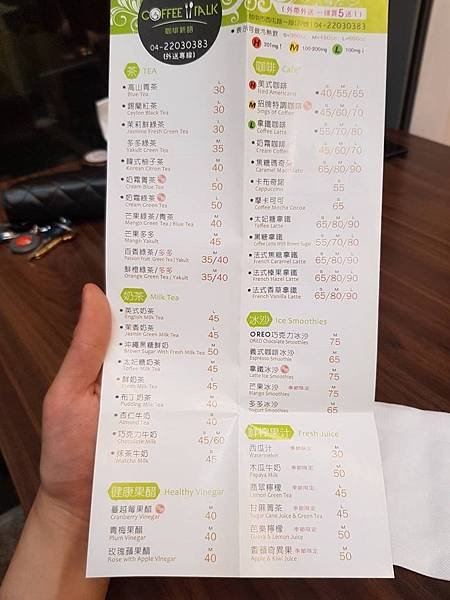 COFFEE TALK
咖啡新語
04-22030383
(外送專線)
茶 TEA
高山青茶 L
Blue Tea 30
錫蘭紅茶 L
Ceylon Black Tea 30
茉莉鮮綠茶 L
Jasmine Fresh Green Tea 30
多多綠茶 M
Yakult Green Tea 35
韓式柚子茶 M
Korean Citron Tea 40
奶霜菁茶 L
Cream Blue Tea 50
奶霜綠茶 L
Cream Green Tea 50
芒果綠茶/青茶 M
Mango Green Tea / Blue Tea 40
芒果多多 M
Mango Yakult 45
百香綠茶/多多 M
Passion Fruit Green Tea / Yakult 35/40
鮮橙綠茶/多多 M
Orange Green Tea / Yakult 35/40
奶茶 Milk Tea
英式奶茶 L
English Milk Tea 45
茉香奶茶 L
Jasmin Green Milk Tea 45
沖繩黑糖鮮奶 M
Brown Sugar With Fresh Milk Tea 50
太妃糖奶茶 M
Toffee Milk Tea 45
鮮奶茶 L
Fresh Milk Tea 45
布丁奶茶 M
Pudding Milk Tea 40
杏仁牛奶 S
Almond Tea 40
巧克力牛奶 S M
Chocolate Milk 45/60
抹茶牛奶 S
Matcha Milk 45
健康果醋 Healthy Vinegar
蔓越莓果醋 M
Cranberry Vinegar 40
青梅果醋 M
Plum Vinegar 40
玫瑰蘋果醋 M
Rose with Apple Vinegar 40
(外帶外送 一律買5送1)
04-22030383
表示可做冷熱飲 S=360c.c. M=480c.c. L=660c.c.
H 201mg↑ M 100-200mg L 100mg↓
咖啡 Cafe'
美式咖啡 S M L
Iced Americano 40/55/65
招牌特調咖啡 S M L
Sings of Coffee 45/60/70
拿鐵咖啡 S M L
Coffee Latte 55/70/80
奶霜咖啡 S M L
Cream Coffee 45/60/70
黑糖瑪奇朵 S M L
Caramel Macchiato 65/80/90
卡布奇諾 S
Cappuccino 55
摩卡可可 S
Coffee Mocha Cocoa 65
太妃糖拿鐵 S M L
Toffee Caramel Latte 65/80/90
黑糖拿鐵 S M L
Coffee Latte With Brown Sugar 55/70/80
法式焦糖拿鐵 S M L
French Caramel Latte 65/80/90
法式榛果拿鐵 S M L
French Hazel Latte 65/80/90
法式香草拿鐵 S M L
French Vanilla Latte 65/80/90
冰沙 Ice Smoothies
OREO巧克力冰沙 M
OREO Chocolate Smoothies 75
義式咖啡冰沙 M
Espresso Smoothie 65
拿鐵冰沙 M
Latte Ice Smoothies 75
芒果冰沙 季節限定 M
Mango Smoothies 75
多多冰沙 M
Yogurt Smoothies 65
鮮榨果汁 Fresh Juice
西瓜汁 季節限定 M
Watermelon 30
木瓜牛奶 季節限定 M
Papaya Milk 50
翡翠檸檬 L
Lemon Green Tea 45
甘蔗菁茶 季節限定 L
Sugar Cane Juice & Green Tea 45
芭樂檸檬 季節限定 M
Guava & Lemon Juice 50
香蘋奇異果 季節限定 M
Apple & Kiwi Juice 50